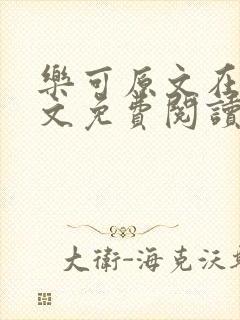 樂可原文在
文免費閱讀
大衛-海克沃